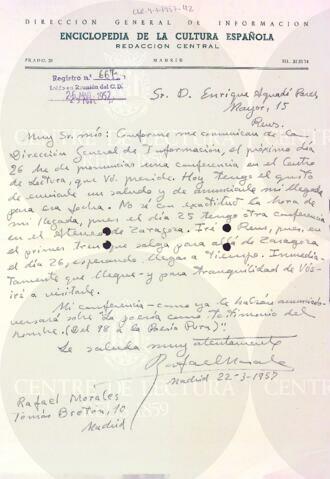 CLR-4-1-1957-112
DIRECCION GENERAL DE INFORMACION
ENCICLOPEDIA DE LA CULTURA ESPAÑOLA
REDACCION CENTRAL
PRADO, 21
MADRID
Registro n.º 667
Leído en Reunión del C. D.
25 MAR. 1957
Sr. D. Enrique Aguadé Parés
Mayor, 15
Reus.
Muy Sr. mío: Conforme me comunican de la
Dirección General de Información, el próximo día
26 he de pronunciar una conferencia en el Centro
de Lectura, que Vd. preside. Hoy tengo el gusto
de enviarle un saludo y de anunciarle mi llegada
para esa fecha. No sé con exactitud la hora de
mi llegada, pues el día 25 tengo otra conferencia
en el Ateneo de Zaragoza. Iré a Reus, pues, en
el primer tren que salga para allá de Zaragoza
el día 26, esperando llegar a tiempo. Inmedia-
tamente que llegue y para tranquilidad de Vds.
iré a visitarle.
Mi conferencia - como ya le habrán anunciado -
versará sobre "La poesía como testimonio del
hombre. (Del 98 a la Poesía Pura)".
Le saluda muy atentamente
Rafael Morales
Madrid 22-3-1957
Rafael Morales
Tomás Bretón, 10
Madrid
CENTRE DE LECTURA
1859